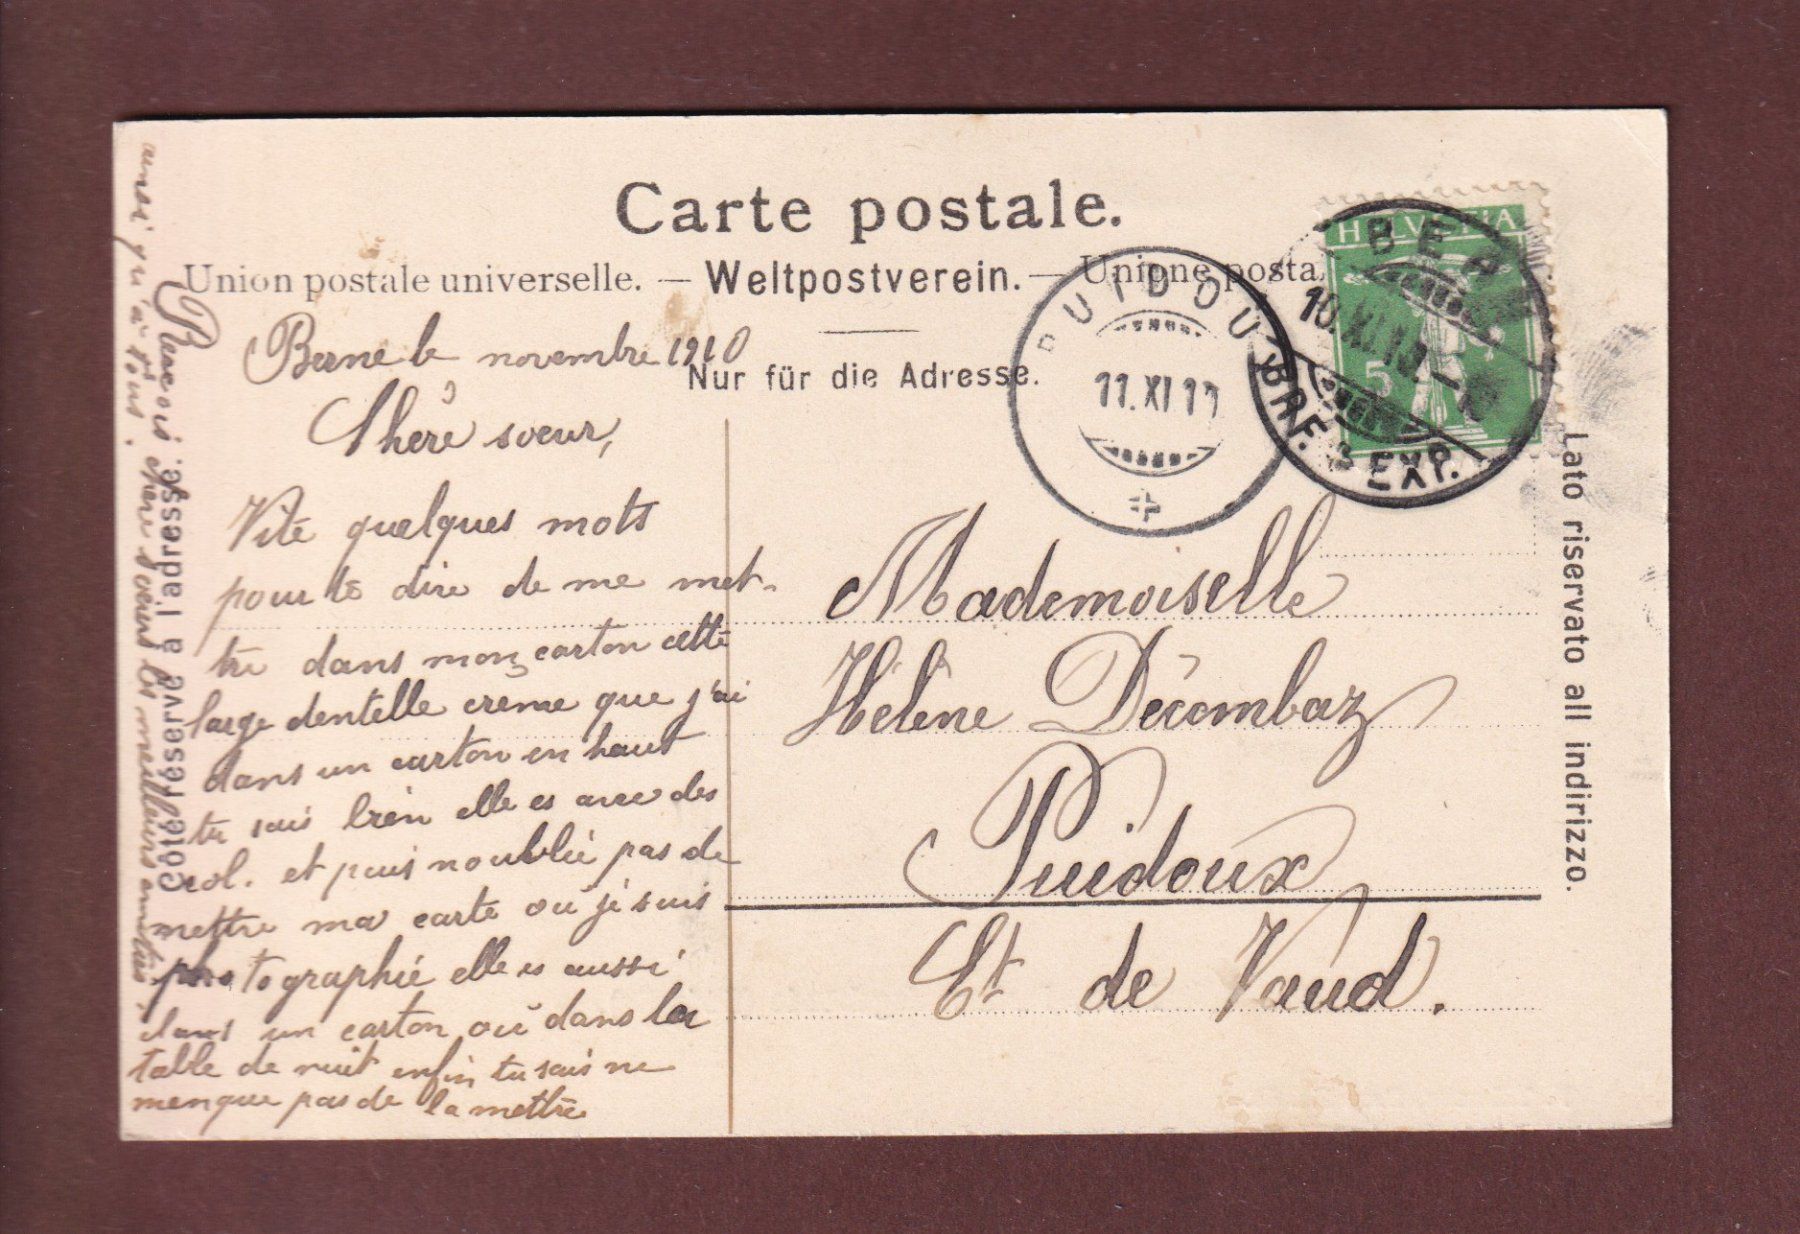 Carte postale.
Union postale universelle. — Weltpostverein. — Unione posta
Nur für die Adresse.
Côté réservé à l'adresse.
Lato riservato all indirizzo.
HELVETIA
5
BER
10.XI.10.-
BRF. EXP.
PUIDOUX
11.XI 10
Berne le novembre 1910
Chère soeur,
Vite quelques mots
pour te dire de me met-
tre dans mon carton cette
large dentelle crème que j'ai
dans un carton en haut
tu sais bien elle es avec des
col. et puis noublie pas de
mettre ma carte ou je suis
photographié elle es aussi
dans un carton ou dans la
table de nuit enfin tu sais ne
menque pas de la mettre
Reçois chère soeur les meilleurs amitiés
ainsi qu'à tous.
Mademoiselle
Hélène Décombaz
Puidoux
Ct de Vaud.